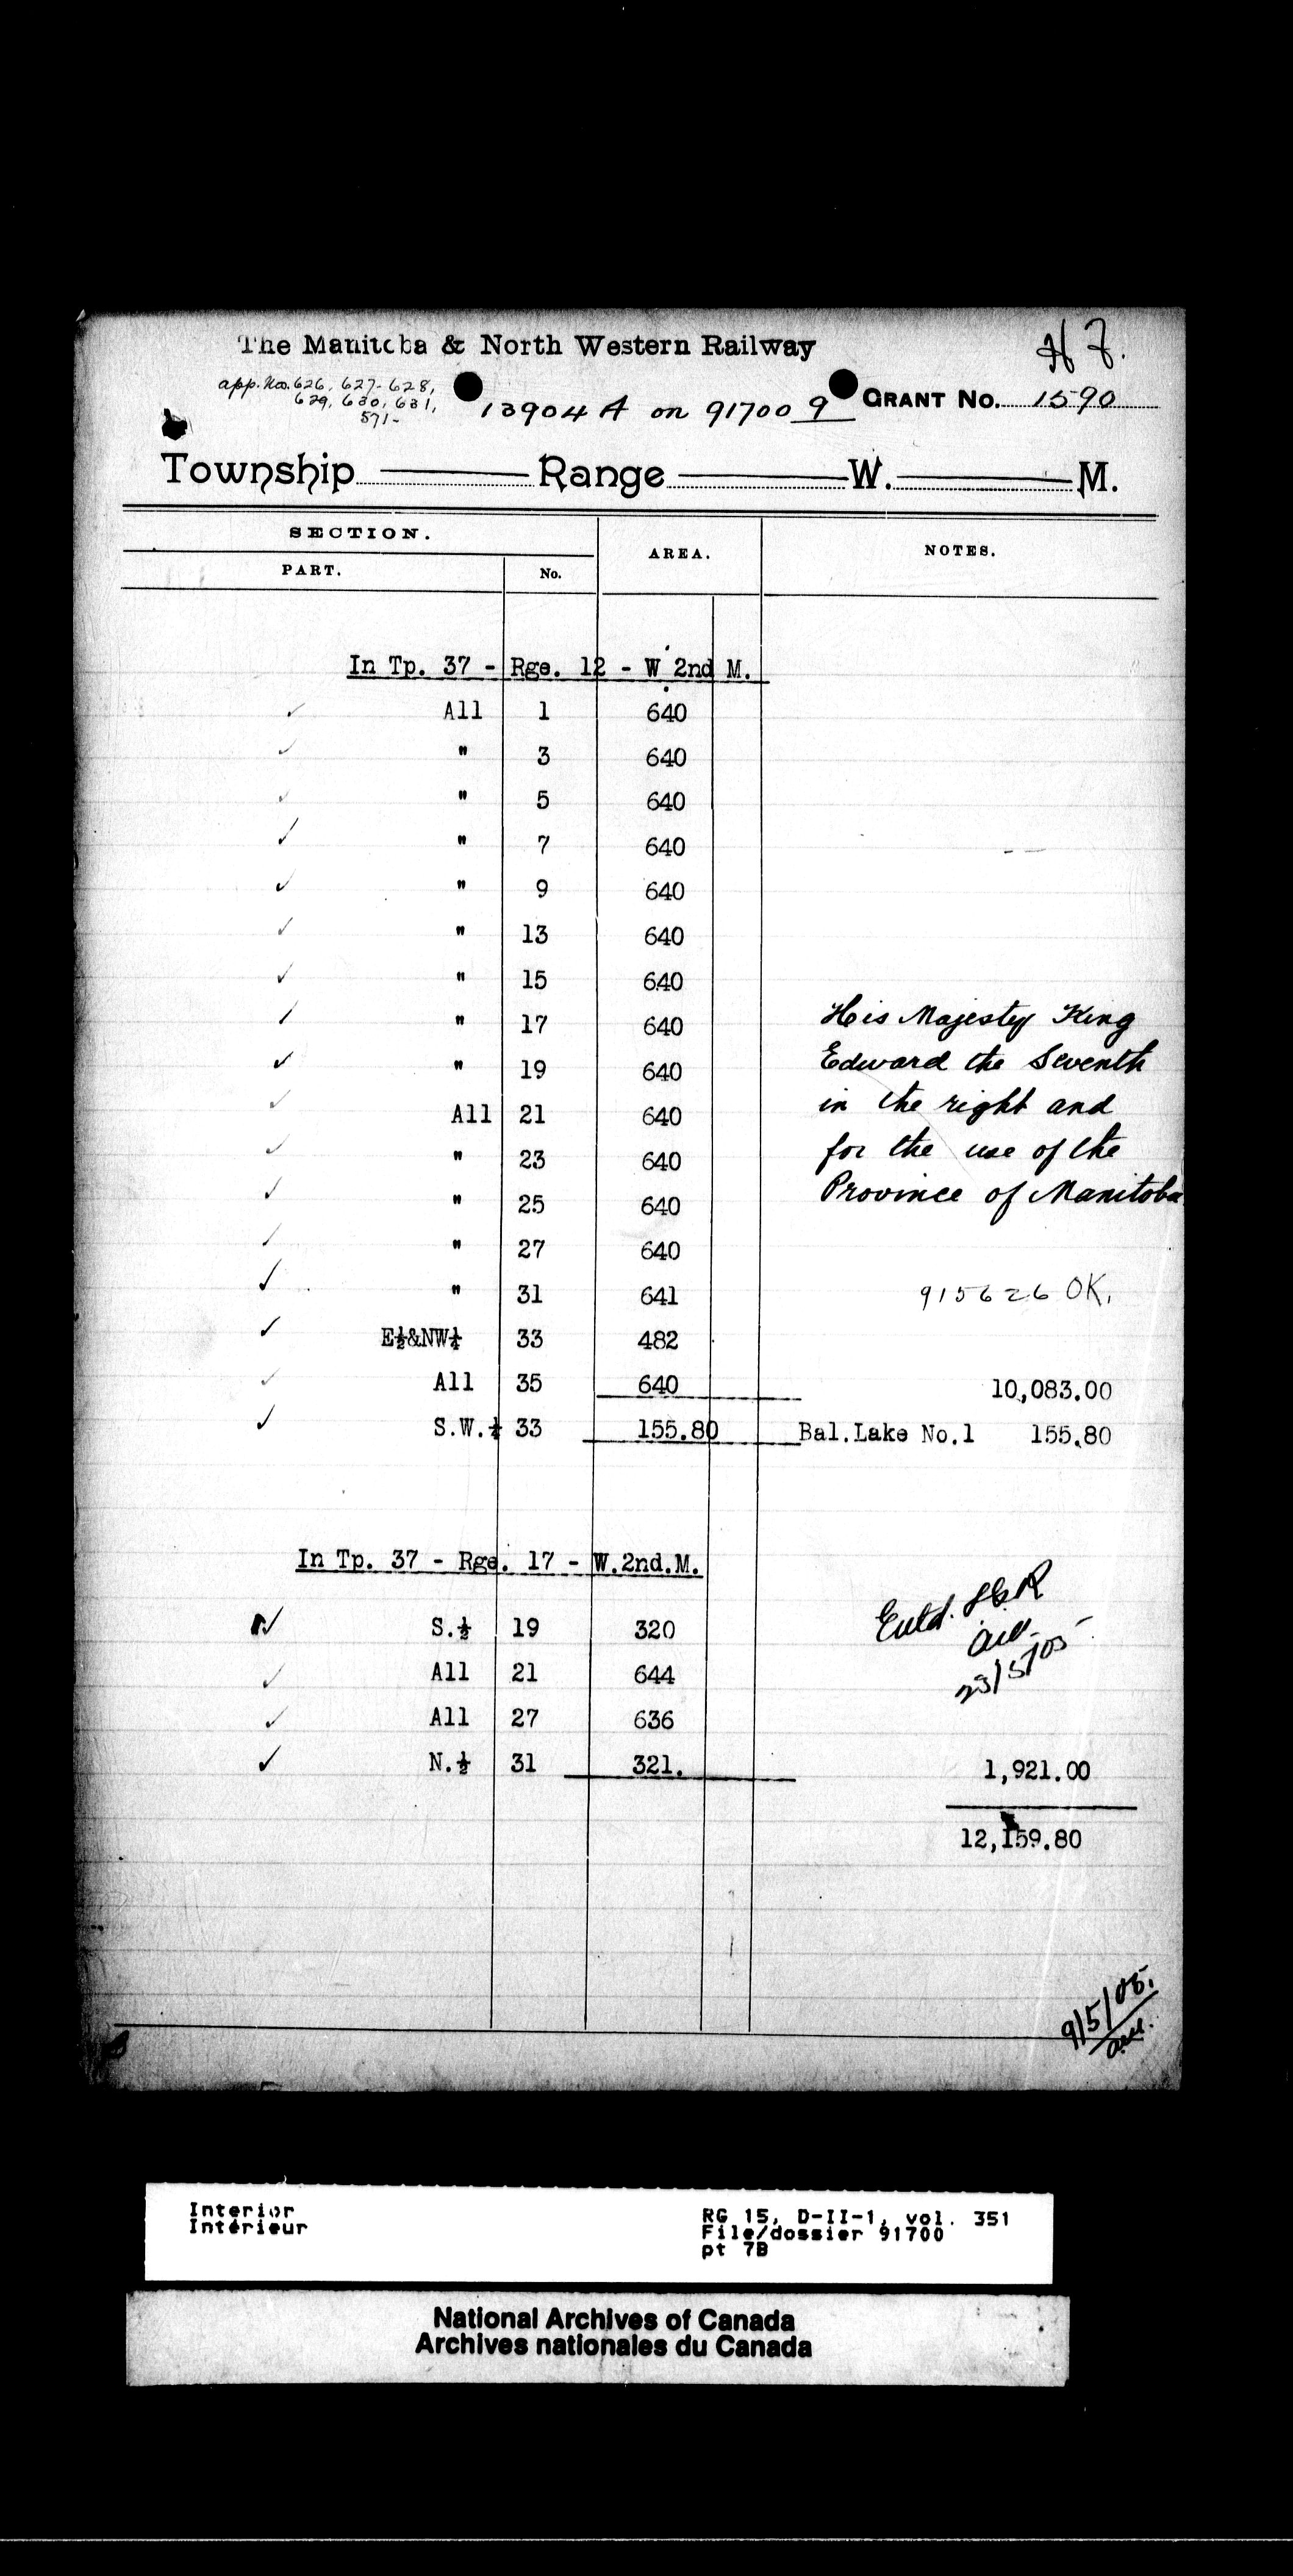 The Manitoba & North Western Railway
app. Nos. 626, 627-628,
629, 630, 631,
571-
13904 A on 91700 9
GRANT No. 1590
Township Range W. M.
SECTION.
PART. No. AREA. NOTES.
In Tp. 37 - Rge. 12 - W 2nd M.
✓ All 1 640
✓ " 3 640
✓ " 5 640
✓ " 7 640
✓ " 9 640
✓ " 13 640
✓ " 15 640
✓ " 17 640 His Majesty King
✓ " 19 640 Edward the Seventh
✓ All 21 640 in the right and
✓ " 23 640 for the use of the
✓ " 25 640 Province of Manitoba
✓ " 27 640
✓ " 31 641 915626 OK.
✓ E½&NW¼ 33 482
✓ All 35 640 10,083.00
✓ S.W.¼ 33 155.80 Bal.Lake No.1 155.80
In Tp. 37 - Rge. 17 - W.2nd.M.
✓ S.½ 19 320 Entd.
✓ All 21 644 23/5/05
✓ All 27 636
✓ N.½ 31 321. 1,921.00
12,159.80
9/5/05.
Interior
Intérieur
RG 15, D-II-1, vol. 351
File/dossier 91700
pt 7B
National Archives of Canada
Archives nationales du Canada